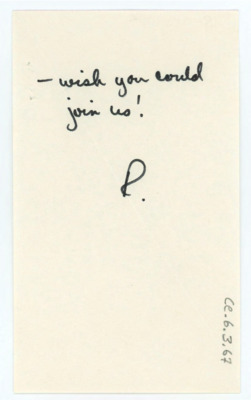 – wish you could
join us!
R.
Ce.6.3.67